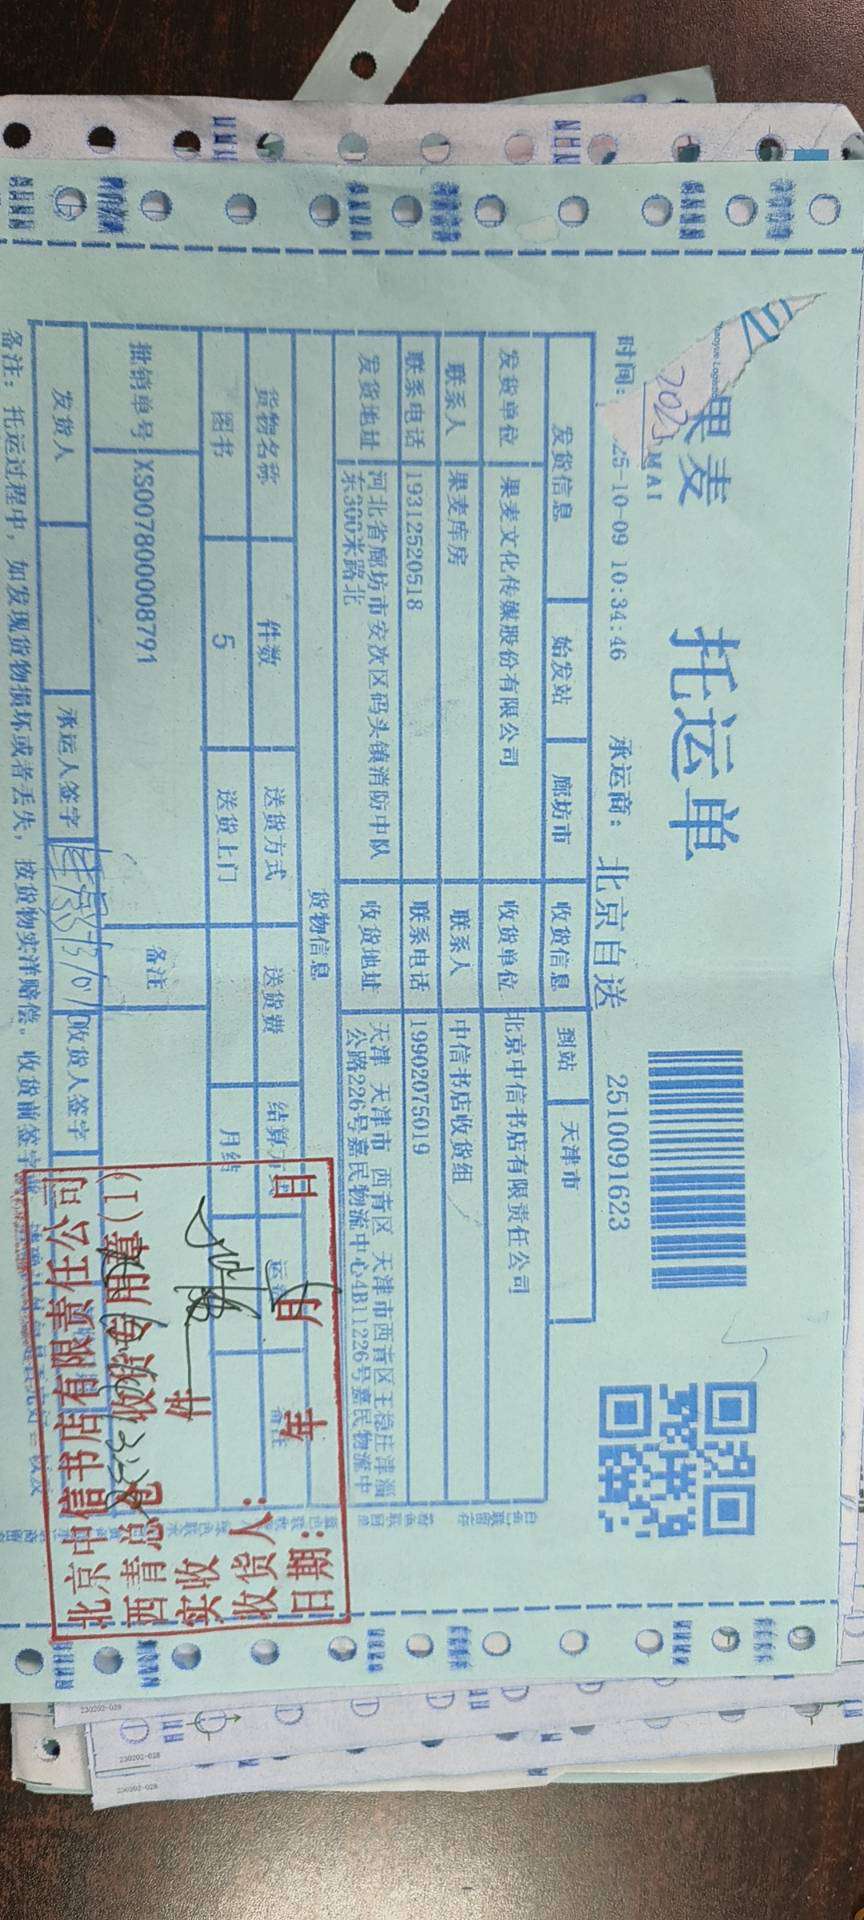 果麦
2025
MAI
托运单
时间: 25-10-09 10:34:46 承运商: 北京自送 2510091623
发货信息 始发站 廊坊市 收货信息 到站 天津市
发货单位 果麦文化传媒股份有限公司 收货单位 北京中信书店有限责任公司
联系人 果麦库房 联系人 中信书店收货组
联系电话 19312520518 联系电话 19902075019
发货地址 河北省廊坊市安次区码头镇消防中队东300米路北 收货地址 天津 天津市 西青区 天津市西青区王稳庄津淄公路226号嘉民物流中心4B11226号嘉民物流中
货物信息
货物名称 件数 送货方式 送货费 结算方式 备注
图书 5 送货上门 月结
批销单号 XS007800008791 备注
发货人 承运人签字 收货人签字
备注: 托运过程中, 如发现货物损坏或者丢失, 按货物实洋赔偿。收货前签字
北京中信书店有限责任公司
西青总仓收货专用章(1)
实收 件
收货人:
日期: 年 月 日
230202-028
230202-028
230202-028